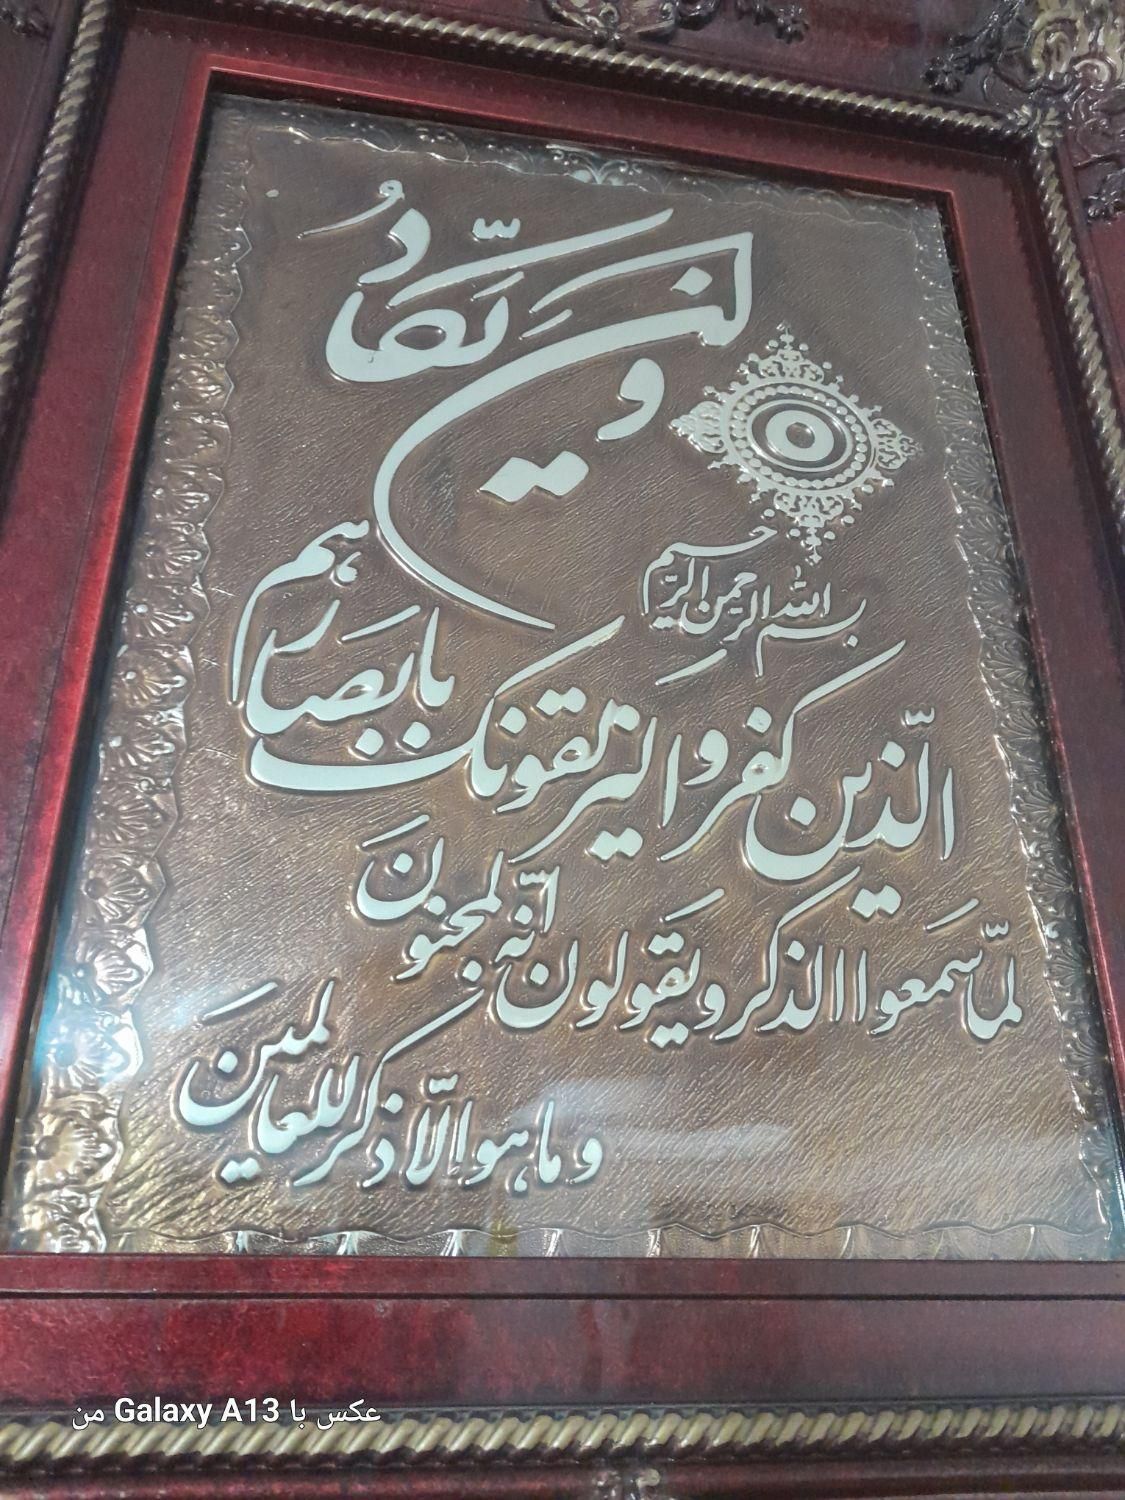 و ان یکادُ
بسم الله الرحمن الرحیم
الّذین کفروا لیزلقونک بابصارهم
لمّا سمعوا الذکر و یقولون انّه لمجنون
و ما هو الّا ذکر للعالمین
عکس با Galaxy A13 من